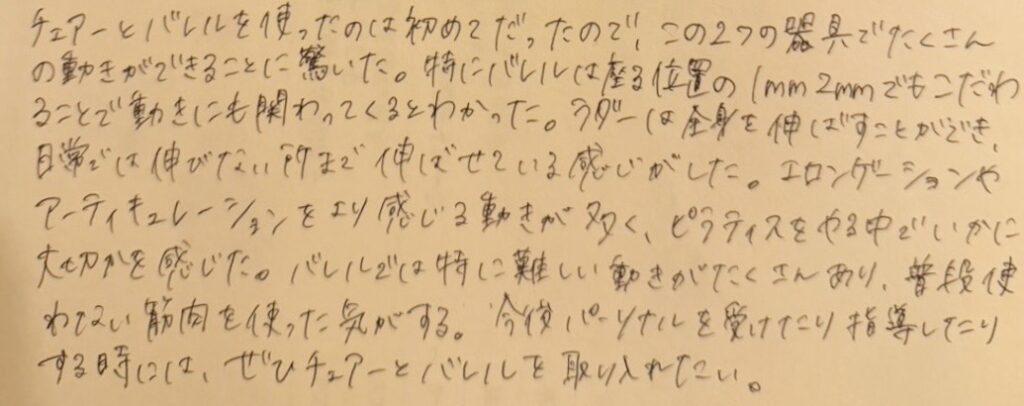 チェアーとバレルを使ったのは初めてだったので、この2つの器具でたくさん
の動きができることに驚いた。特にバレルは座る位置の1mm2mmでもこだわ
ることで動きにも関わってくるとわかった。ラダーは全身を伸ばすことができ、
日常では伸びない所まで伸ばせている感じがした。エロンゲーションや
アーティキュレーションをより感じる動きが多く、ピラティスをやる中でいかに
大切かを感じた。バレルでは特に難しい動きがたくさんあり、普段使
わない筋肉を使った気がする。今後パーソナルを受けたり指導したり
する時には、ぜひチェアーとバレルを取り入れたい。